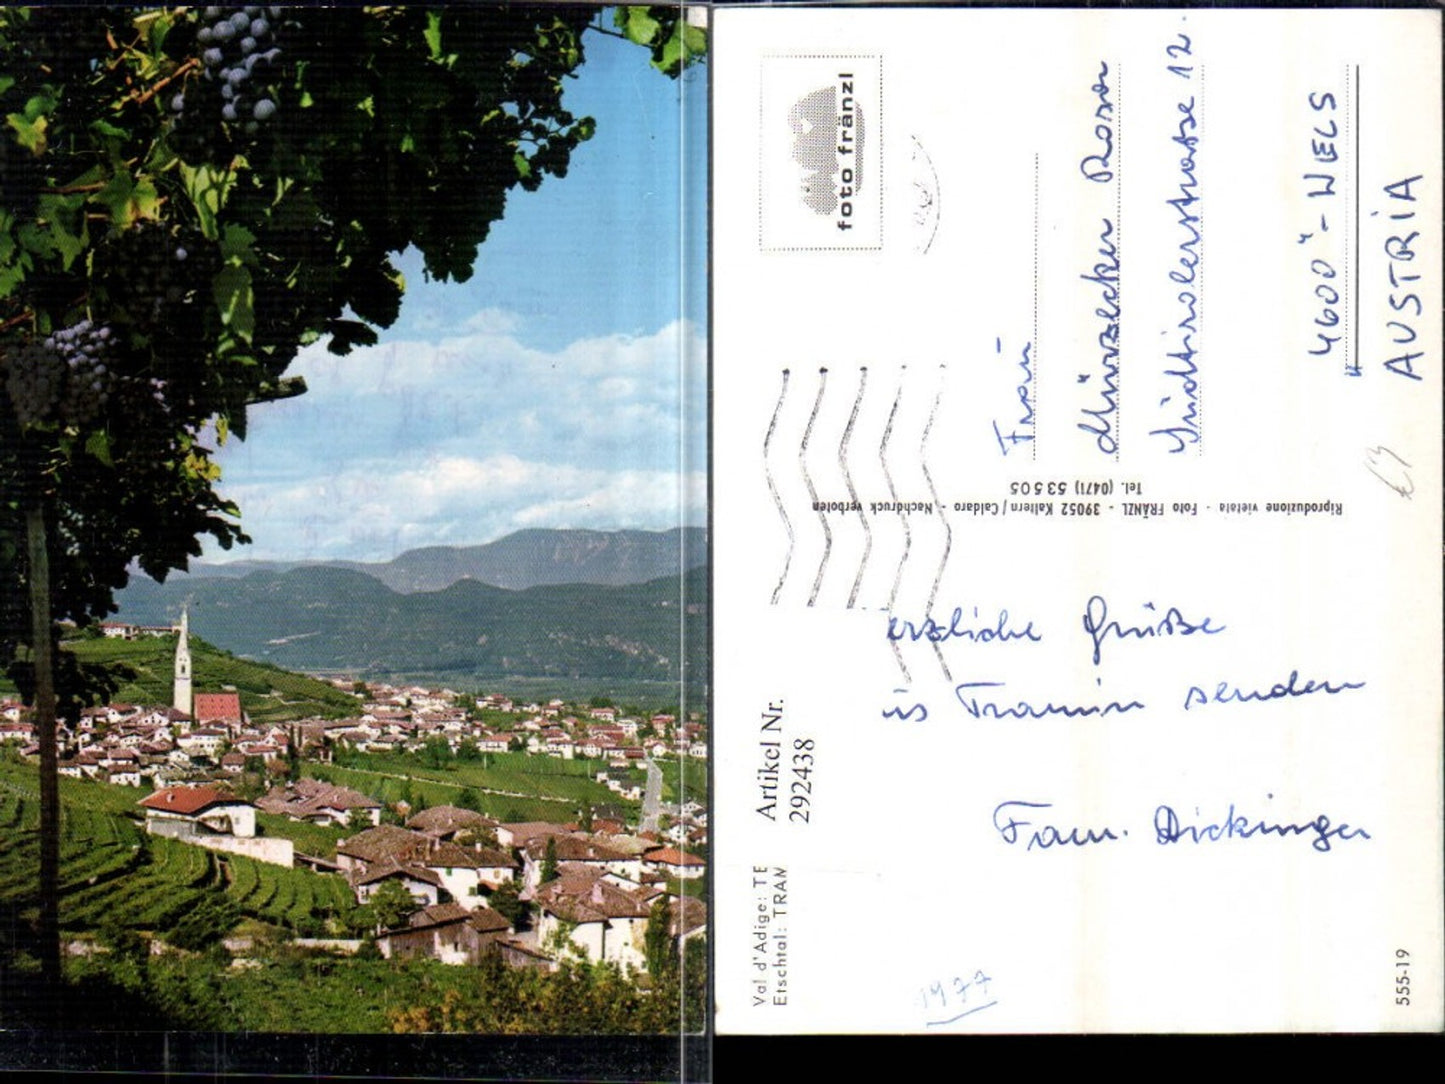 foto fränzl
Frau
Rosa
Südtirolerstrasse 12.
4600 - WELS
AUSTRIA
Riproduzione vietata - Foto FRÄNZL - 39052 Kaltern / Caldaro - Nachdruck verboten
Tel. (0471) 53505
erzliche Grüße
us Tramin senden
Fam. Dickinger
Artikel Nr.
292438
Val d'Adige: TE
Etschtal: TRAM
1977
555-19